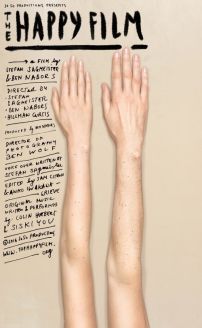 SO SO PRODUCTIONS PRESENTS
THE
HAPPY FILM
a film by
STEFAN SAGMEISTER
& BEN NABORS
DIRECTED BY
· STEFAN
SAGMEISTER
· BEN NABORS
· HILLMAN CURTIS
PRODUCED by BEN NABORS
DIRECTOR OF
PHOTOGRAPHY
BEN WOLF
VOICE OVER WRITTEN BY
STEFAN SAGMEISTER
EDITED by SAM CITRON
ORIGINAL MUSIC
WRITTEN & PERFORMED
by COLIN
& SISKIYOU
PRODUCTIONS
WWW.THEHAPPYFILM.
org